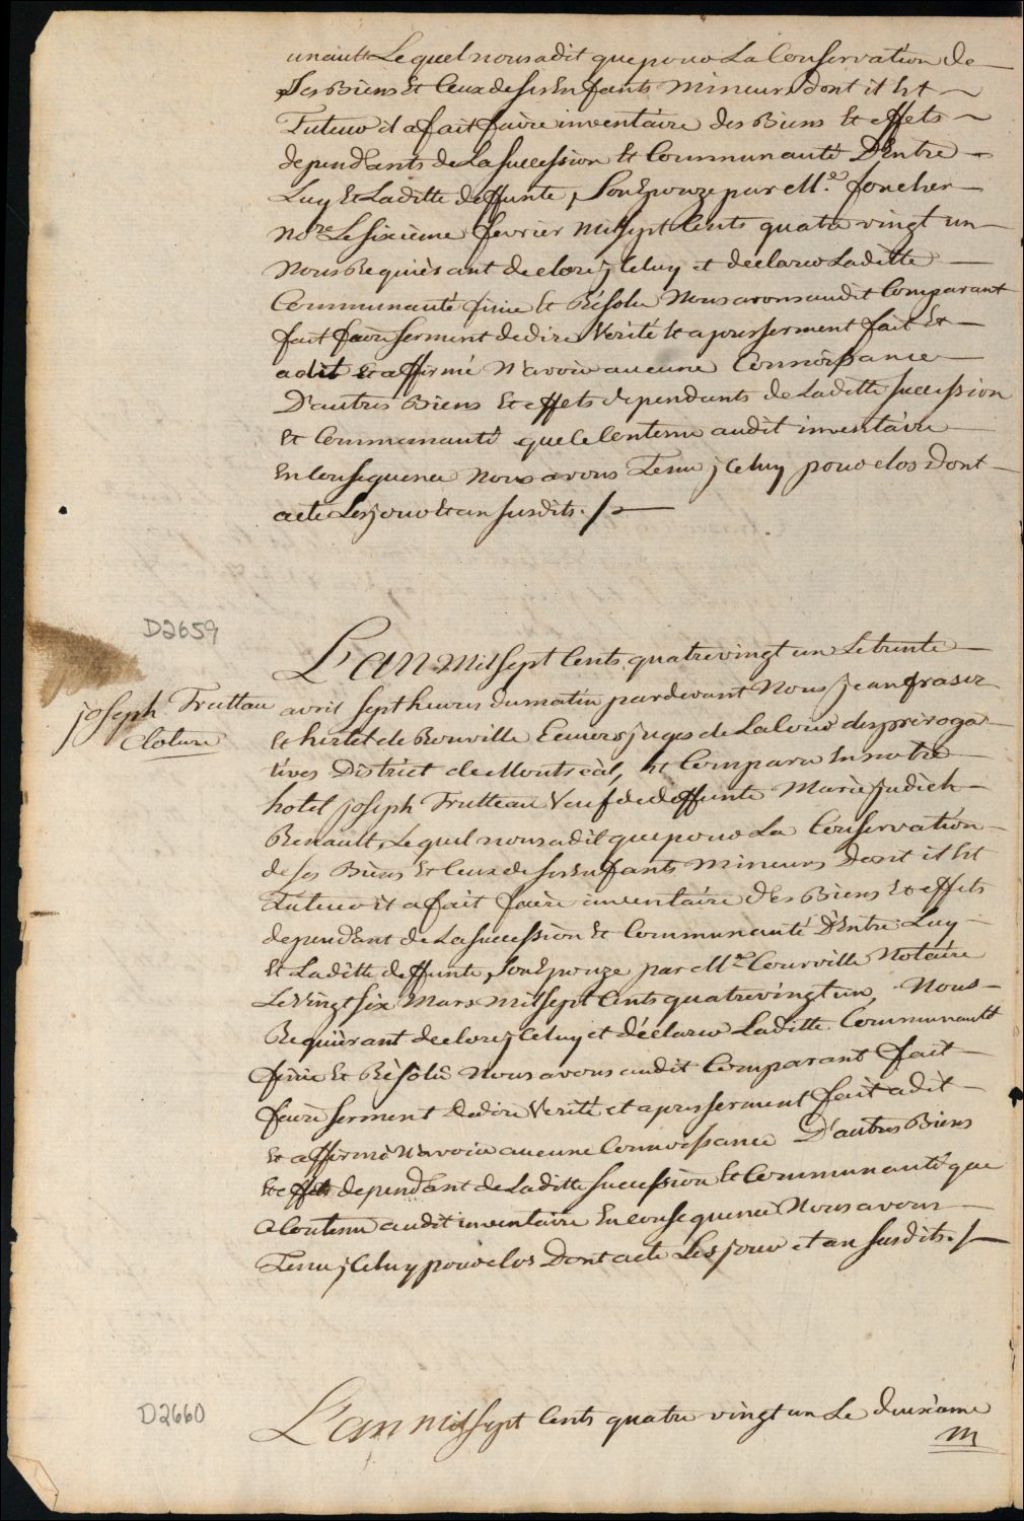 unault Lequel nous a dit que pour La Conservation de
Ses Biens Et Ceux de ses Enfants Mineurs dont il Est
Tuteur il a fait faire inventaire des Biens Et effets
dependants de La succession Et Communauté D'Entre
Luy Et Laditte deffunte, Son Epouze par Me. foucher
nore Le sixieme fevrier Mil sept Cents quatre vingt un
Nous Requièrant de clore j Celuy et declarer Laditte
Communauté finie Et Résolu Nous avons audit Comparant
fait faire serment de dire Verité Et apres serment fait Et
a dit Et affirmé N'avoir aucune Connoissance
D'autres Biens Et effets dependants de Laditte succession
Et Communauté que Le Contenu audit inventaire
En Consequence Nous avons Tenu j Celuy pour clos Dont
acte Les jour Et an susdits. /
D2659
L'an Mil sept Cents quatre vingt un Le trente
joseph Trutteau
Cloture
avril sept heures du matin par devant Nous jean fraser
Et hertel de Rouville Ecuiers juges de La Cour des préroga
tives District de Montréal, Est Comparu En notre
hotel joseph Trutteau Veuf de deffunte Marie judich
Renault, Lequel nous a dit que pour La Conservation
de ses Biens Et Ceux de ses Enfants Mineurs Dont il Est
Tuteur il a fait faire inventaire des Biens Et effets
dependant de La succession Et Communauté D'Entre Luy
Et Laditte deffunte, Son Epouze par Me. Courville Notaire
Le Vingt six Mars Mil sept Cents quatre vingt un, Nous
Requièrant de clore j Celuy et déclarer Laditte Communauté
finie Et Résolu Nous avons audit Comparant fait
faire serment De dire Verité et apres serment fait a dit
Et affirmé N'avoir aucune Connoissance D'autres Biens
Et effets dependant de Laditte succession Et Communauté que
Contenu audit inventaire En consequence Nous avons
Tenu j Celuy pour clos Dont acte Les jour et an susdits. /
D2660
L'an Mil sept Cents quatre vingt un Le deuxiame
m